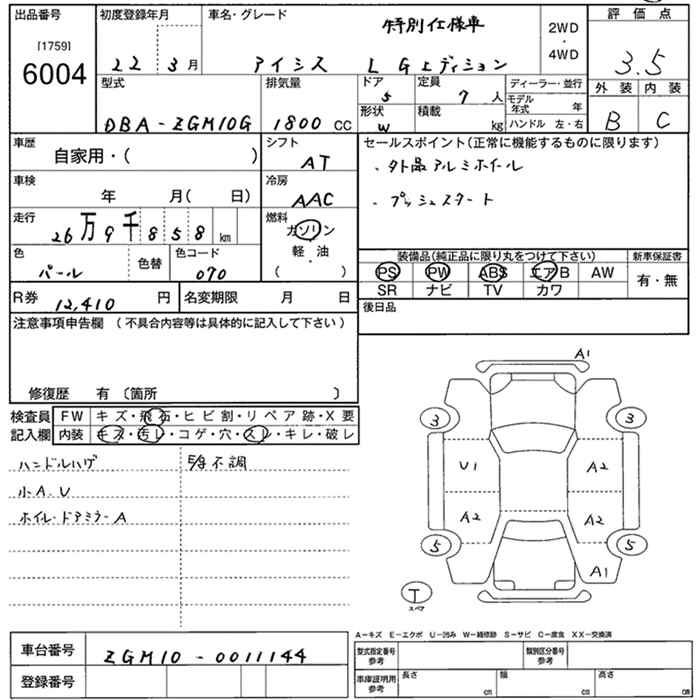 出品番号
[1759]
6004
初度登録年月
22 3月
車名・グレード
特別仕様車
アイシス L Gエディション
2WD
・
4WD
評価点
3.5
外装 内装
B C
型式
DBA-ZGM10G
排気量
1800 CC
ドア
5
定員
7 人
形状
W
積載
kg
ディーラー・並行
モデル年式 年
ハンドル 左・右
車歴
自家用・( )
シフト
AT
セールスポイント(正常に機能するものに限ります)
・外品アルミホイール
・プッシュスタート
車検
年 月( 日)
冷房
AAC
走行
26万9千858km
燃料
ガソリン
軽油
・
( )
色
パール
色替
色コード
070
装備品(純正品に限り丸をつけて下さい)
PS PW ABS エアB AW
SR ナビ TV カワ
新車保証書
有・無
R券 12,410 円
名変期限 月 日
後日品
注意事項申告欄 (不具合内容等は具体的に記入して下さい)
修復歴 有 〔箇所 〕
検査員記入欄
FW キズ・飛石・ヒビ割・リペア跡・X要
内装 キズ・汚レ・コゲ・穴・スレ・キレ・破レ
ハンドルハゲ
小A.U
ホイル・ドアミラーA
不調
A1
3
3
U1
A2
A2
A2
5
5
A1
T
スペア
A-キズ E-エクボ U-凹み W-補修跡 S-サビ C-腐食 XX-交換済
車台番号 ZGM10-0011144
登録番号
型式指定番号
参考
類別区分番号
参考
車庫証明用
参考
長さ cm
幅 cm
高さ cm